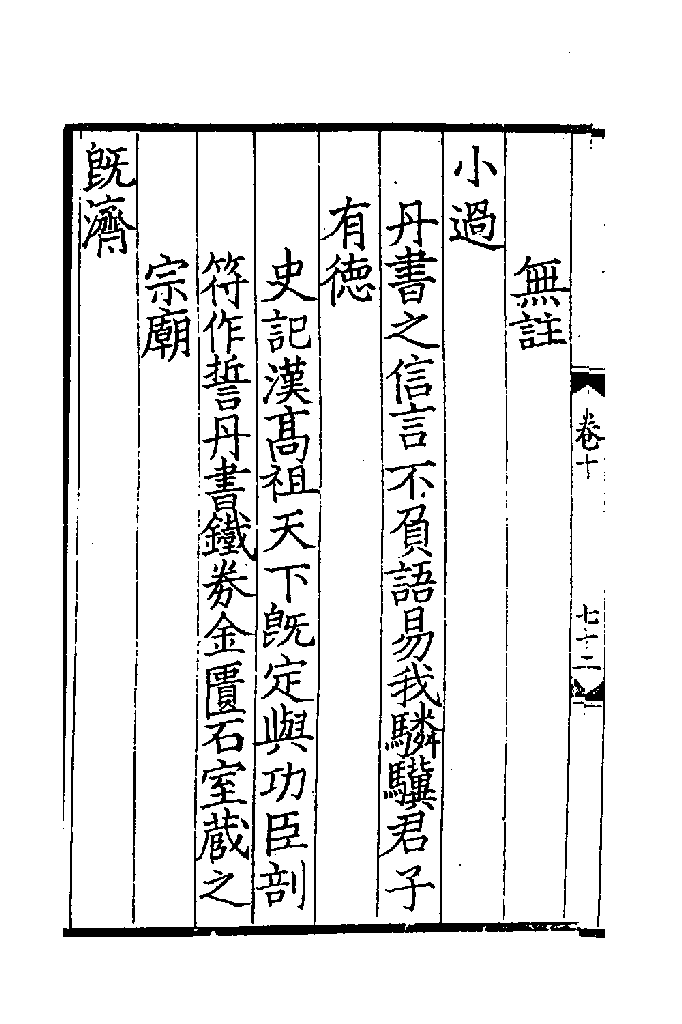 卷十
七十二
無註
小過
丹書之信言不負語易我驎驥君子
有徳
史記漢髙祖天下旣定與功臣剖
符作誓丹書鐵券金匱石室蔵之
宗廟
旣濟